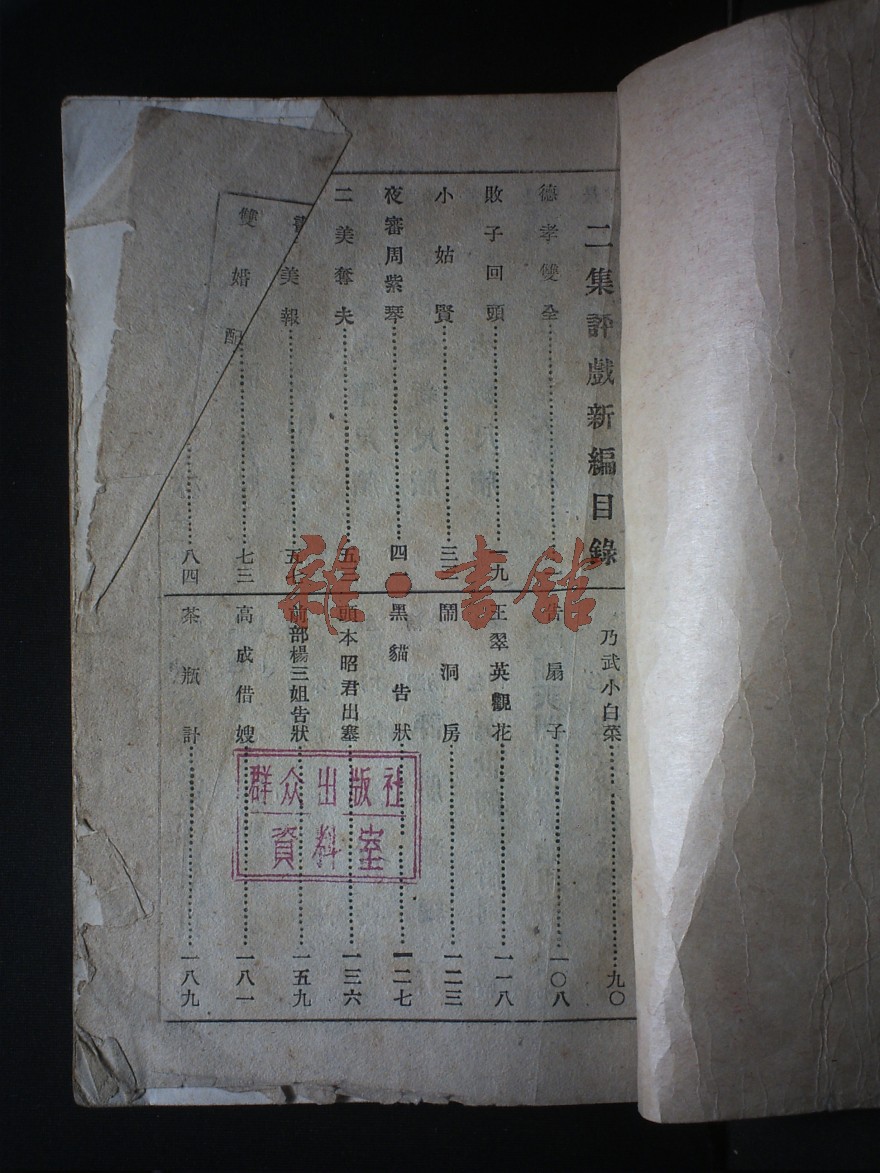 二集評戲新編目錄
德孝雙全
敗子回頭 一九
小姑賢 三三
夜審周紫琴 四一
二美奪夫 五
美報 五
雙婚配 七三
八四
乃武小白菜 九〇
借扇子 一〇八
王翠英觀花 一一八
鬧洞房 一二三
黑貓告狀 一二七
頭本昭君出塞 一三六
前部楊三姐告狀 一五九
高成借嫂 一八一
茶瓶計 一八九
群众出版社
資料室
雜·書館